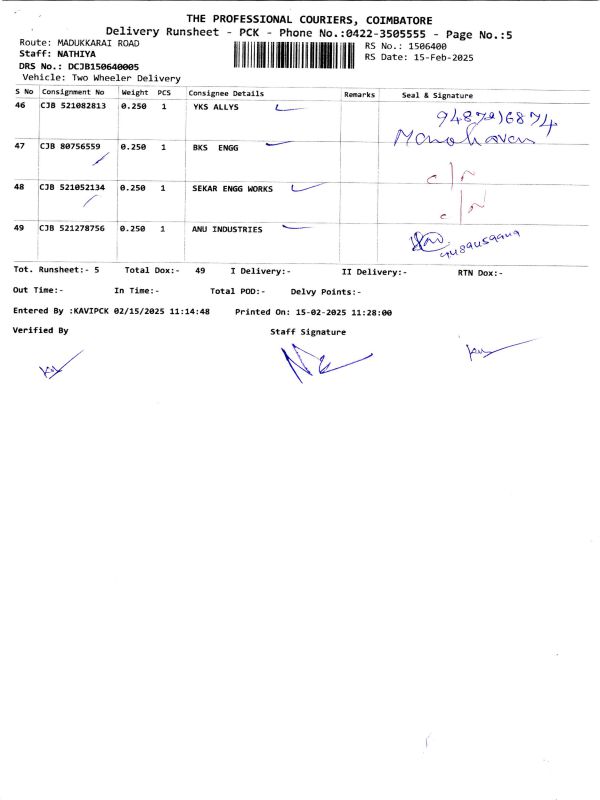 THE PROFESSIONAL COURIERS, COIMBATORE
Delivery Runsheet - PCK - Phone No.:0422-3505555 - Page No.:5
Route: MADUKKARAI ROAD
RS No.: 1506400
Staff: NATHIYA
RS Date: 15-Feb-2025
DRS No.: DCJB150640005
Vehicle: Two Wheeler Delivery
S No Consignment No Weight PCS Consignee Details Remarks Seal & Signature
46 CJB 521082813 0.250 1 YKS ALLYS
Manoharan
47 CJB 80756559 0.250 1 BKS ENGG
48 CJB 521052134 0.250 1 SEKAR ENGG WORKS
49 CJB 521278756 0.250 1 ANU INDUSTRIES
Tot. Runsheet:- 5 Total Dox:- 49 I Delivery:- II Delivery:- RTN Dox:-
Out Time:- In Time:- Total POD:- Delvy Points:-
Entered By :KAVIPCK 02/15/2025 11:14:48 Printed On: 15-02-2025 11:28:00
Verified By Staff Signature